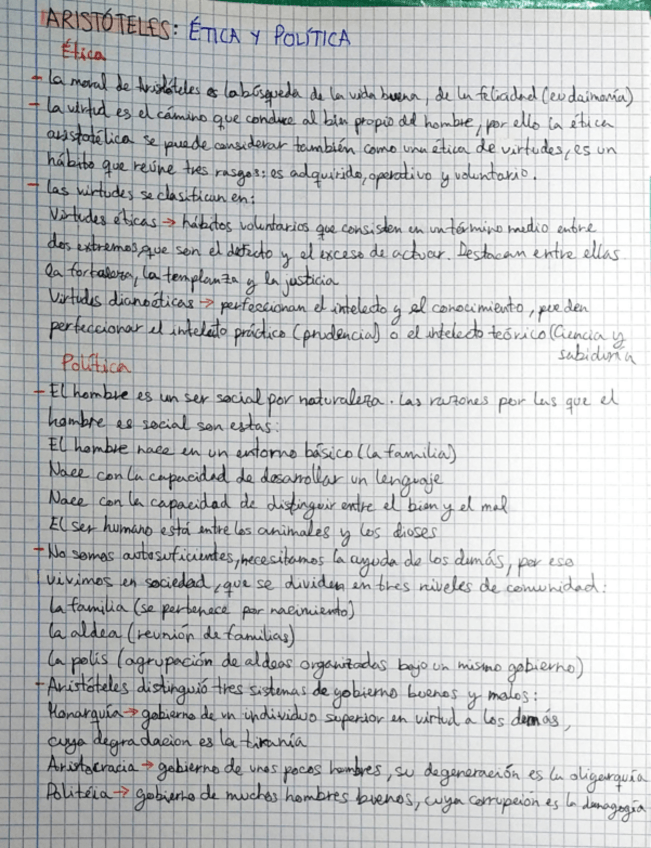 ARISTÓTELES: ÉTICA Y POLÍTICA
Ética
- La moral de Aristóteles es la búsqueda de la vida buena, de la felicidad (eudaimonía)
- La virtud es el cámino que conduce al bien propio del hombre, por ello la ética
aristotélica se puede considerar también como una ética de virtudes, es un
hábito que reúne tres rasgos: es adquirido, operativo y voluntario.
- Las virtudes se clasifican en:
Virtudes éticas → hábitos voluntarios que consisten en un término medio entre
dos extremos, que son el defecto y el exceso de actuar. Destacan entre ellas
la fortaleza, la templanza y la justicia
Virtudes dianoéticas → perfeccionan el intelecto y el conocimiento, pueden
perfeccionar el intelecto práctico (prudencia) o el intelecto teórico (Ciencia y
sabiduría
Política
- El hombre es un ser social por naturaleza. Las razones por las que el
hombre es social son estas:
El hombre nace en un entorno básico (la familia)
Nace con la capacidad de desarrollar un lenguaje
Nace con la capacidad de distinguir entre el bien y el mal
El ser humano está entre los animales y los dioses
- No somos autosuficientes, necesitamos la ayuda de los demás, por eso
vivimos en sociedad, que se dividen en tres niveles de comunidad:
La familia (se pertenece por nacimiento)
La aldea (reunión de familias)
La polis (agrupación de aldeas organizadas bajo un mismo gobierno)
- Aristóteles distinguió tres sistemas de gobierno buenos y malos:
Monarquía → gobierno de un individuo superior en virtud a los demás,
cuya degradación es la tiranía
Aristocracia → gobierno de unos pocos hombres, su degeneración es la oligarquía
Politéia → gobierno de muchos hombres buenos, cuya corrupción es la demagogia